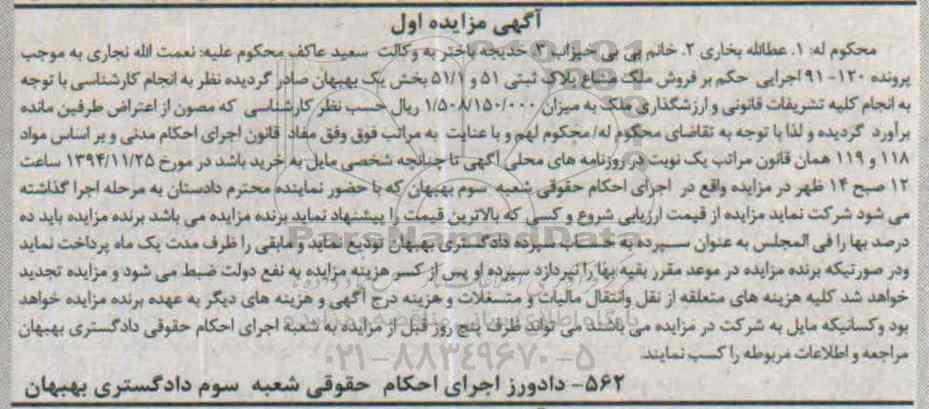 آگهی مزایده اول
محکوم له: ۱. عطاالله بخاری ۲. خانم بی بی خیزاب ۳. خدیجه باختر به وکالت سعید عاکف محکوم علیه: نعمت الله نجاری به موجب
پرونده ۱۲۰- ۹۱ اجرایی حکم بر فروش ملک مشاع پلاک ثبتی ۵۱ و ۵۱/۱ بخش یک بهبهان صادر گردیده نظر به انجام کارشناسی با توجه
به انجام کلیه تشریفات قانونی و ارزشگذاری ملک به میزان ۱/۵۰۸/۱۵۰/۰۰۰ ریال حسب نظر کارشناسی که مصون از اعتراض طرفین مانده
برآورد گردیده و لذا با توجه به تقاضای محکوم له/ محکوم لهم و با عنایت به مراتب فوق وفق مفاد قانون اجرای احکام مدنی و بر اساس مواد
۱۱۸ و ۱۱۹ همان قانون مراتب یک نوبت در روزنامه های محلی آگهی تا چنانچه شخصی مایل به خرید باشد در مورخ ۱۳۹۴/۱۱/۲۵ ساعت
۱۲ صبح ۱۴ ظهر در مزایده واقع در اجرای احکام حقوقی شعبه سوم بهبهان که با حضور نماینده محترم دادستان به مرحله اجرا گذاشته
می شود شرکت نماید مزایده از قیمت ارزیابی شروع و کسی که بالاترین قیمت را پیشنهاد نماید برنده مزایده می باشد برنده مزایده باید ده
درصد بها را فی المجلس به عنوان سپرده به حساب سپرده دادگستری بهبهان تودیع نماید و مابقی را ظرف مدت یک ماه پرداخت نماید
ودر صورتیکه برنده مزایده در موعد مقرر بقیه بها را نپردازد سپرده او پس از کسر هزینه مزایده به نفع دولت ضبط می شود و مزایده تجدید
خواهد شد کلیه هزینه های متعلقه از نقل وانتقال مالیات و متسغلات و هزینه درج آگهی و هزینه های دیگر به عهده برنده مزایده خواهد
بود وکسانیکه مایل به شرکت در مزایده می باشند می تواند ظرف پنج روز قبل از مزایده به شعبه اجرای احکام حقوقی دادگستری بهبهان
مراجعه و اطلاعات مربوطه را کسب نمایند.
۵۶۲- دادورز اجرای احکام حقوقی شعبه سوم دادگستری بهبهان
ParsNamadData
۰۲۱-۸۸۳۴۹۶۷۰-۵